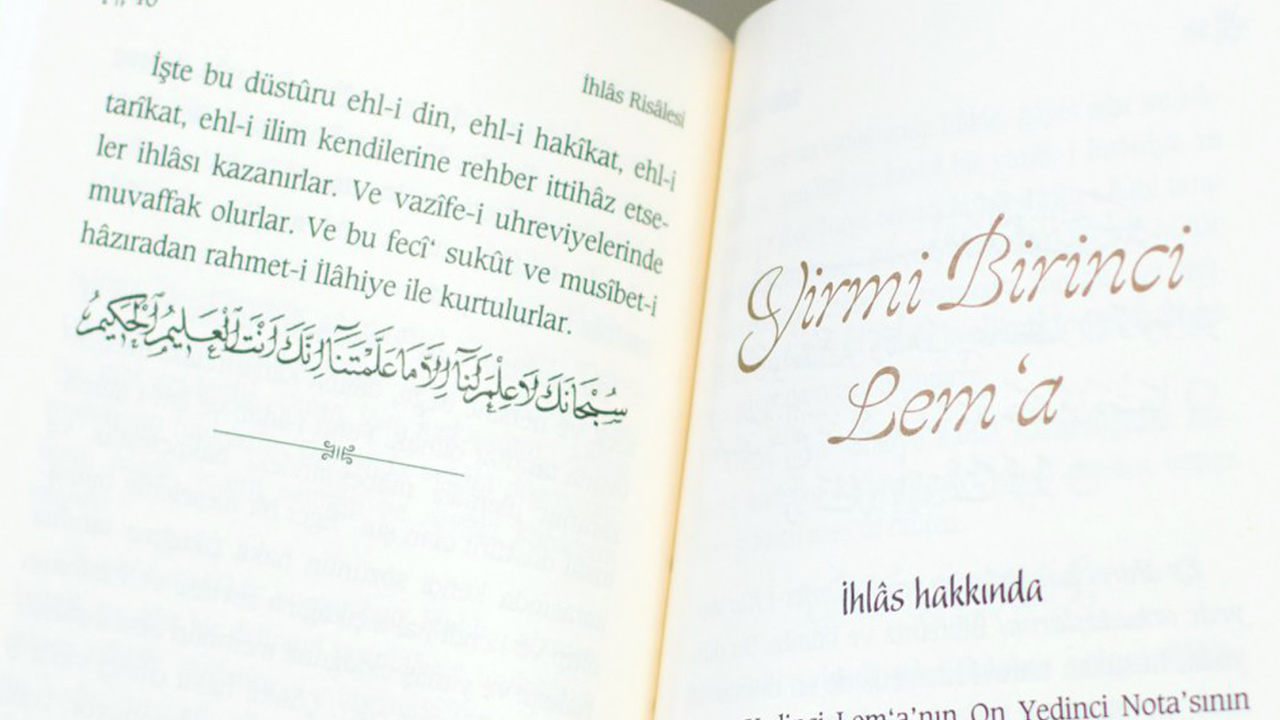 İhlâs Risâlesi
İşte bu düstûru ehl-i din, ehl-i hakîkat, ehl-i
tarîkat, ehl-i ilim kendilerine rehber ittihâz etse-
ler ihlâsı kazanırlar. Ve vazîfe-i uhreviyelerinde
muvaffak olurlar. Ve bu fecî‘ sukût ve musîbet-i
hâzıradan rahmet-i İlâhiye ile kurtulurlar.
سُبْحَانَكَ لَا عِلْمَ لَنَٓا اِلَّا مَا عَلَّمْتَنَٓا اِنَّكَ اَنْتَ الْعَلِيمُ الْحَكِيمُ
Yirmi Birinci
Lem‘a
İhlâs hakkında
Lem‘a’nın On Yedinci Nota’sının